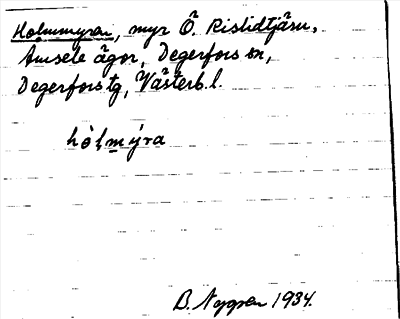 Holmmyran, myr Ö. Rislidtjärn,
Amsele ägor, Degerfors sn,
Degerfors tg, Västerb. l.
hòl̥mýra
B. Nygren 1934.